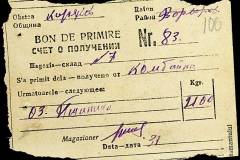 Obștea
Община
Raion
Район
100
BON DE PRIMIRE
СЧЕТ О ПОЛУЧЕНИИ
Nr. 83.
Magazia—склад
S'a primit dela — получено от Комбайна
Urmatoarele—следующее:
Kgr.
03. Пшеница
2100
Magazioner
Data—дата 31